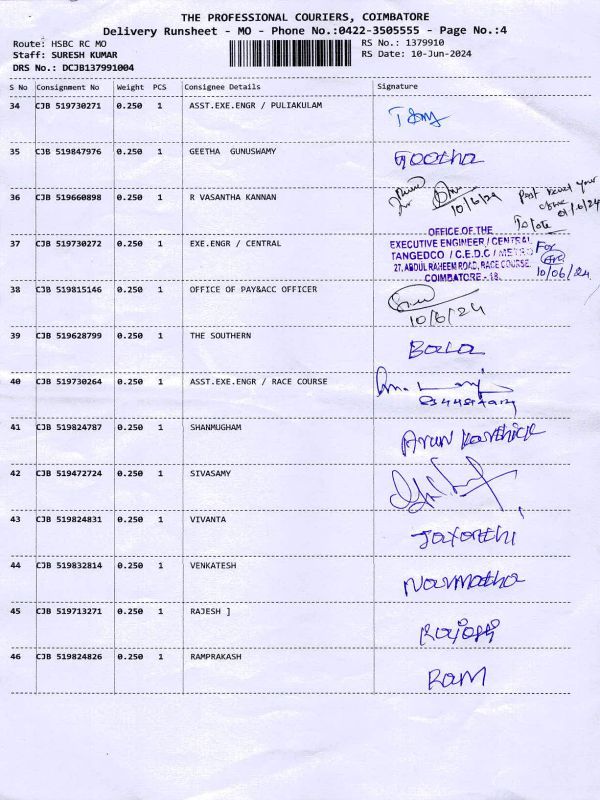 THE PROFESSIONAL COURIERS, COIMBATORE
Delivery Runsheet - MO - Phone No.:0422-3505555 - Page No.:4
Route: HSBC RC MO RS No.: 1379910
Staff: SURESH KUMAR RS Date: 10-Jun-2024
DRS No.: DCJB137991004
S No Consignment No Weight PCS Consignee Details Signature
34 CJB 519730271 0.250 1 ASST.EXE.ENGR / PULIAKULAM
35 CJB 519847976 0.250 1 GEETHA GUNUSWAMY Geetha
36 CJB 519660898 0.250 1 R VASANTHA KANNAN 10/6/24
37 CJB 519730272 0.250 1 EXE.ENGR / CENTRAL
OFFICE OF THE
EXECUTIVE ENGINEER / CENTRAL For
TANGEDCO / C.E.D.C / METRO
27, ABDUL RAHEEM ROAD, RACE COURSE,
COIMBATORE - 18. 10/06/24
38 CJB 519815146 0.250 1 OFFICE OF PAY&ACC OFFICER
10/6/24
39 CJB 519628799 0.250 1 THE SOUTHERN Bala
40 CJB 519730264 0.250 1 ASST.EXE.ENGR / RACE COURSE
41 CJB 519824787 0.250 1 SHANMUGHAM Arun Karthick
42 CJB 519472724 0.250 1 SIVASAMY
43 CJB 519824831 0.250 1 VIVANTA Jayanthi
44 CJB 519832814 0.250 1 VENKATESH Narmatha
45 CJB 519713271 0.250 1 RAJESH ]
46 CJB 519824826 0.250 1 RAMPRAKASH Ram